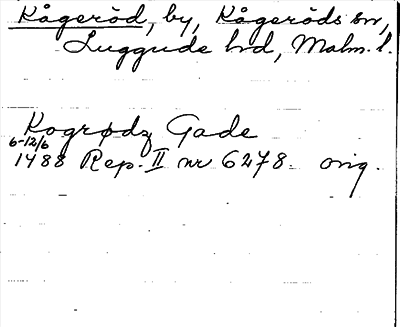 Kågeröd, by, Kågeröds sn,
Luggude hd, Malm. l.
Kogrødz Gade
6-12/6
1488 Rep. II nr 6278. orig.